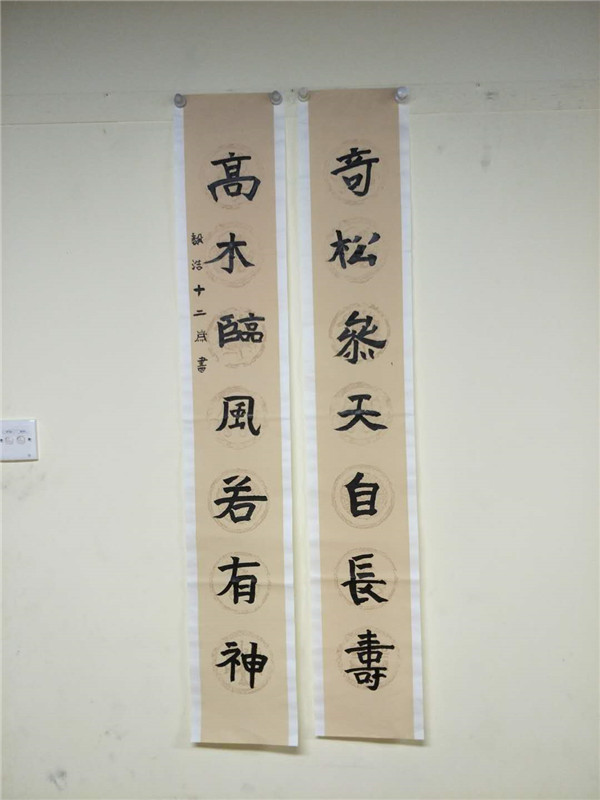 奇松叅天自長壽
高木臨風若有神
毅浩十二歲書